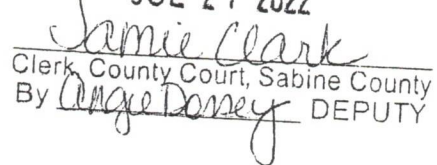 JUL 2022
Jamie Clark
Clerk, County Court, Sabine County
By Angie Dossey DEPUTY